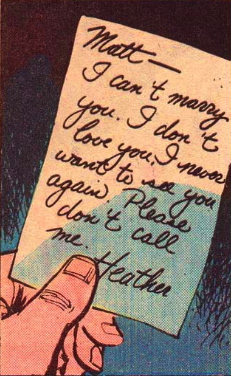 Matt—
I can't marry
you. I don't
love you. I never
want to see you
again. Please
don't call
me.
Heather